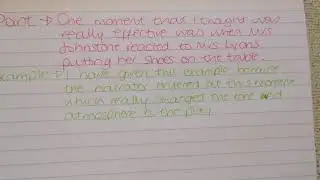 Point → One moment that I thought was
really effective was when Mrs
Johnstone reacted to Mrs Lyons
putting her shoes on the table.
Example → I have given this example because
the narrator entered at this
which really changed the tone and
atmosphere of the play.